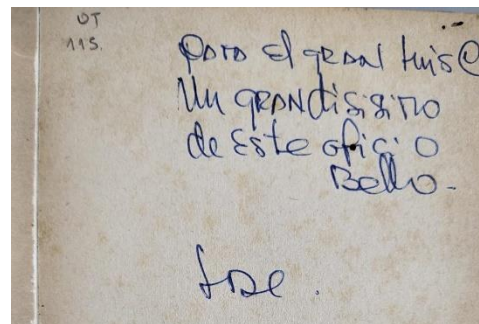 OT
115.
Para el gran Luis
Un grandisisimo
de este oficio
Bello.